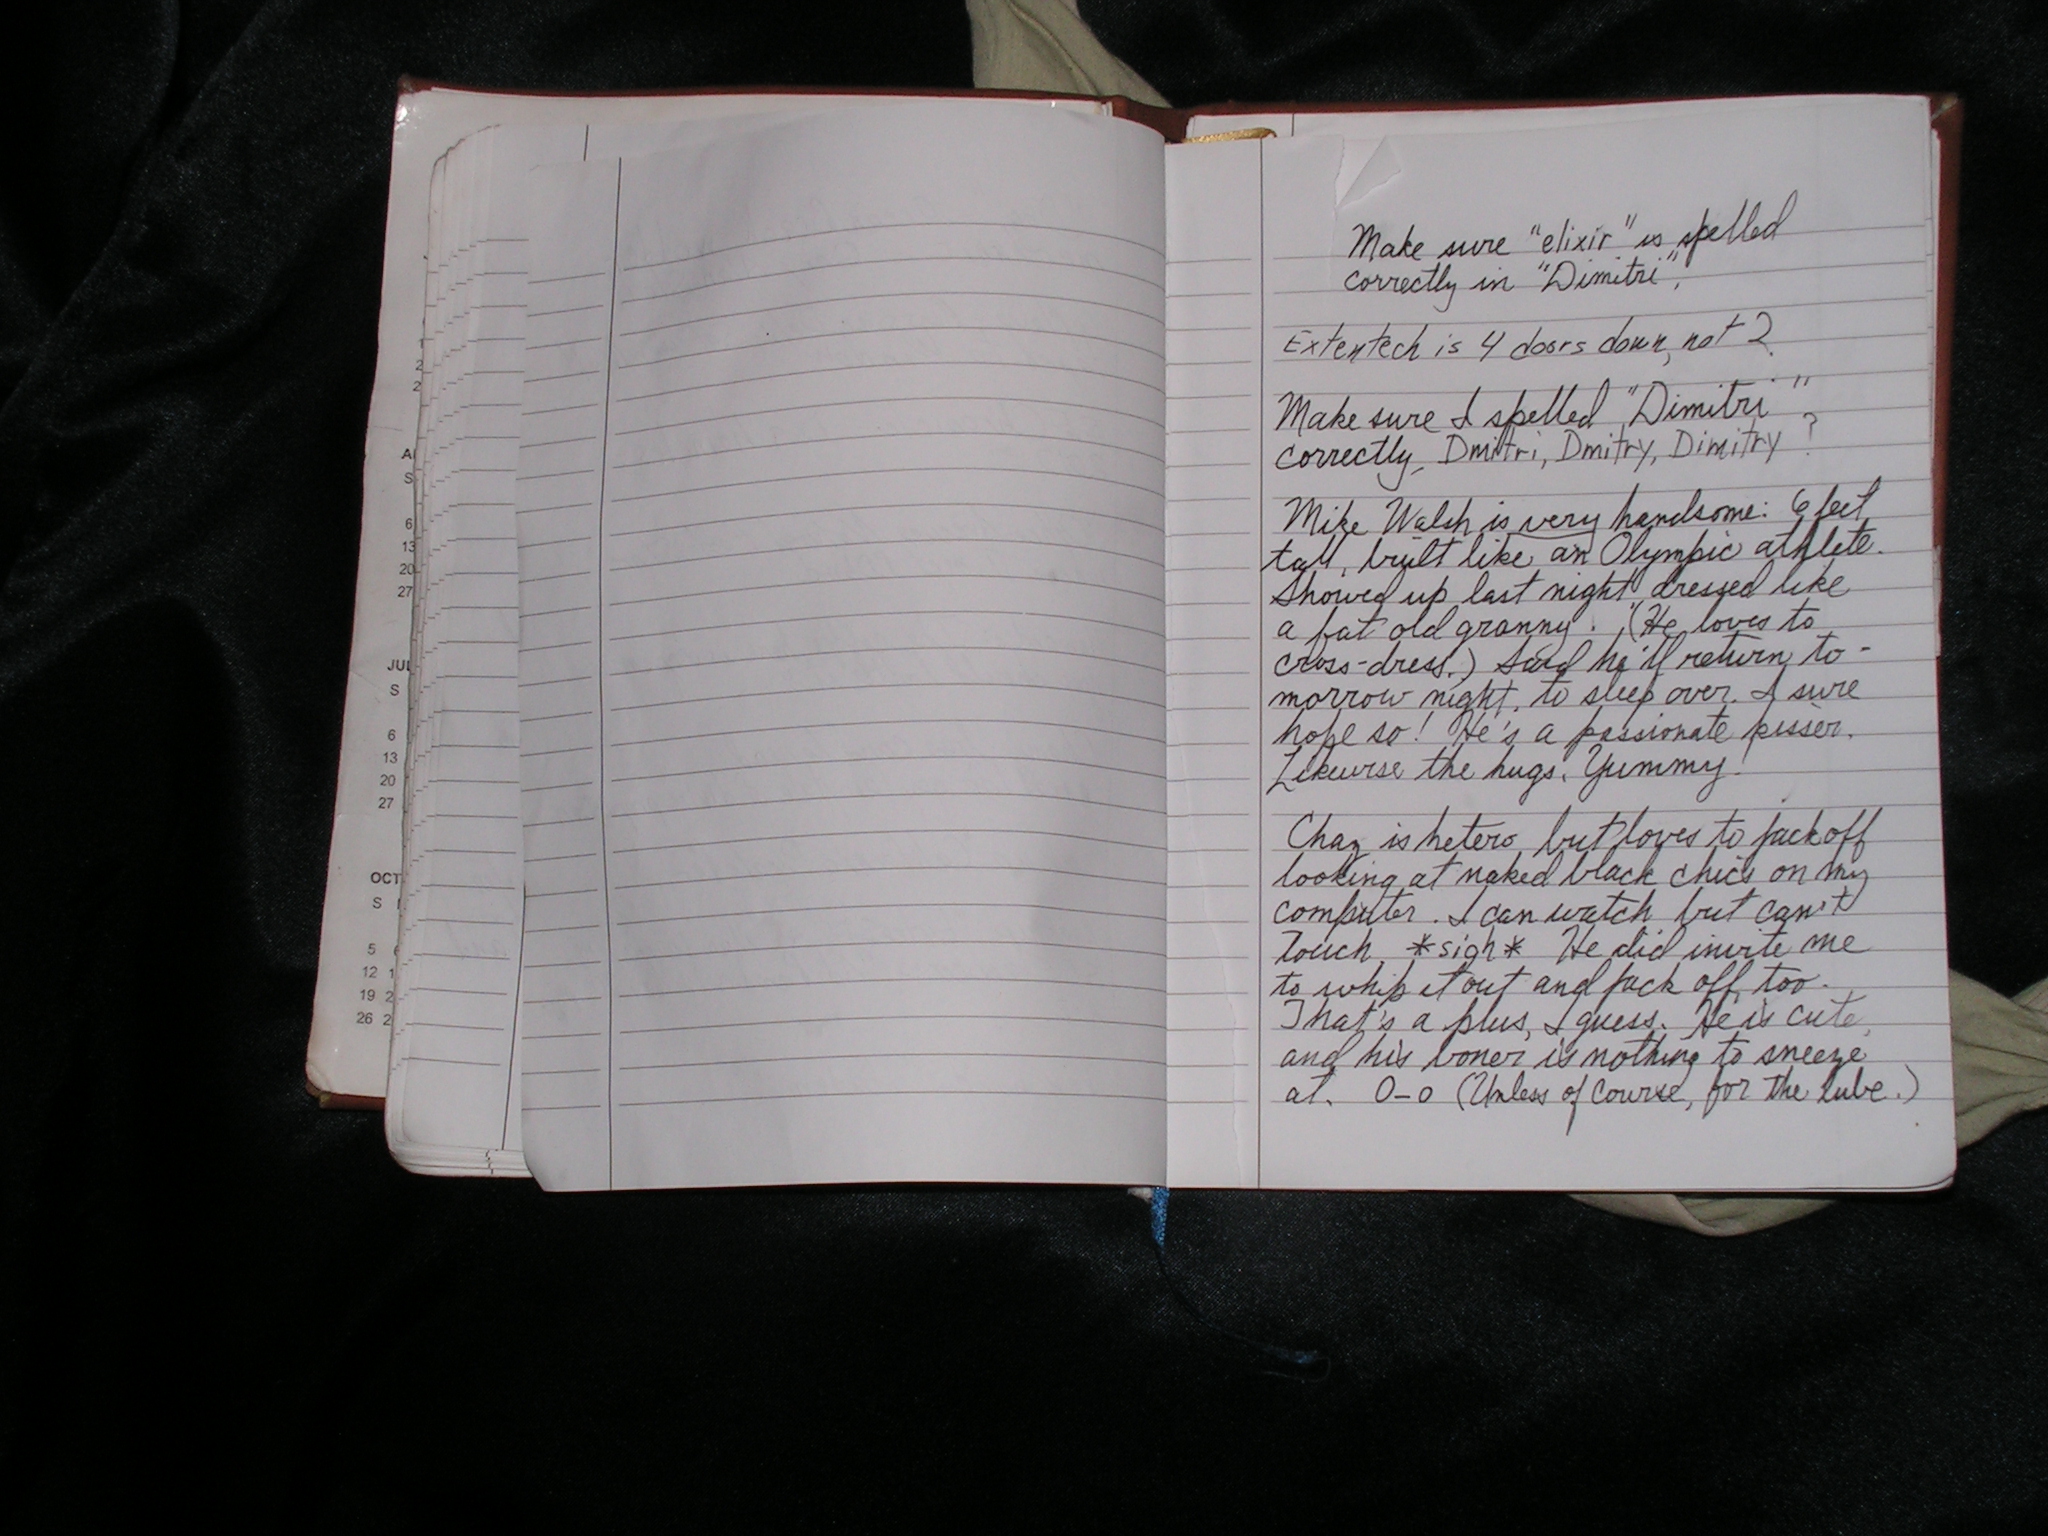 A
S
6
13
20
27
JUL
S
6
13
20
27
OCT
S
5
12
19 2
26 2
Make sure "elixir" is spelled
correctly in "Dimitri".
Extentech is 4 doors down, not 2.
Make sure I spelled "Dimitri"
correctly. Dmitri, Dmitry, Dimitry ?
Mike Walsh is very handsome: 6 feet
tall, built like an Olympic athlete.
Showed up last night dressed like
a fat old granny. (He loves to
cross-dress.) Said he'll return to-
morrow night, to sleep over. I sure
hope so! He's a passionate kisser.
Likewise the hugs. Yummy!
Chaz is hetero, but loves to jack off
looking at naked black chics on my
computer. I can watch but can't
touch. *sigh* He did invite me
to whip it out and jack off, too.
That's a plus, I guess. He is cute,
and his boner is nothing to sneeze
at. O-o (Unless of course, for the lube.)